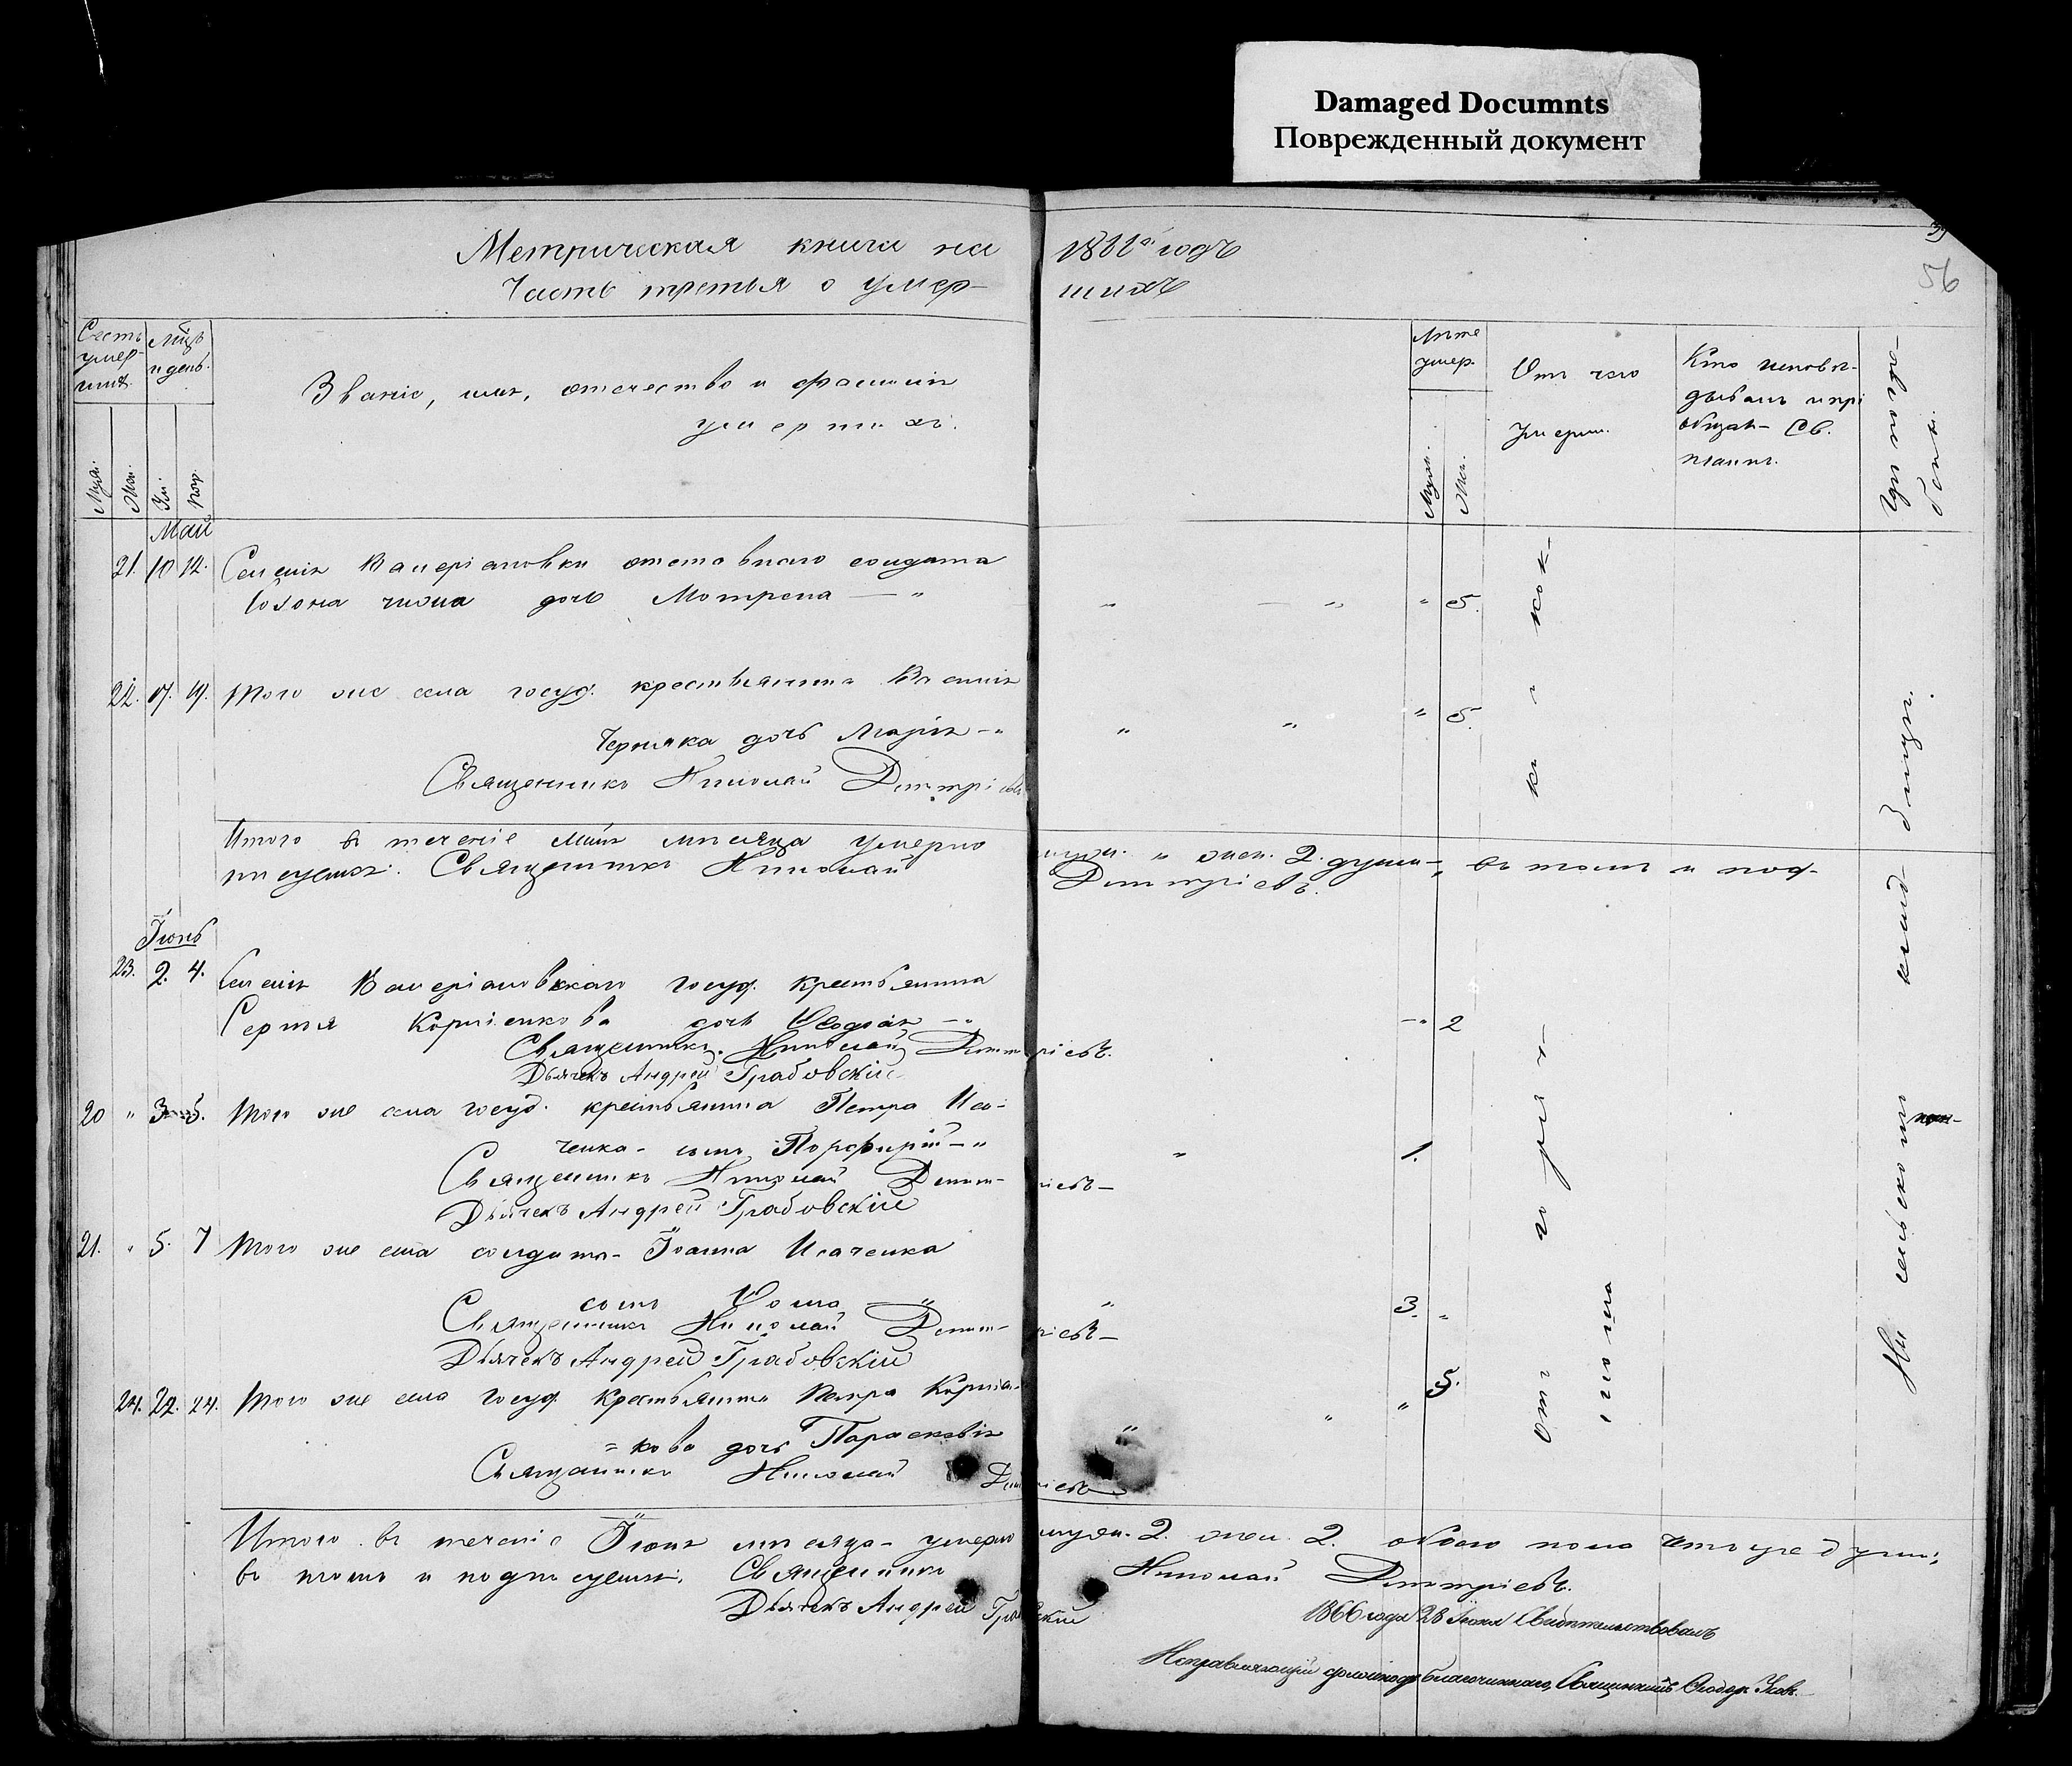 Damaged Documnts
Поврежденный документ
56
Метрическая книга на 186 годъ
Часть третья о умер- шихъ
Счетъ умер- шихъ.
Мцъ и день.
Званіе, имя, отечество и фамилія
умершихъ.
Муж. Жен. Ум. Пог.
Лѣта умер.
Муж. Жен.
Отъ чего
умерли.
Кто исповѣ-
дывалъ и прі
общалъ Св.
таинъ.
Гдѣ погре-
бены.
Май
21. 10 12. Селенія Валеріановки отставного солдата
дочь Мотрена — " " — " " 5.
22. 17. 19. Того же села госуд. крестьянина Василія
Черняка дочь Марія — " " " " 5.
Священникъ Николай Димитріевъ
Итого въ теченіе Мая мѣсяца умерло муж. " жен. 2. души, въ томъ и под-
писуемся: Священникъ Николай Димитріевъ.
Іюнь
23. 2. 4. Селенія Валеріановскаго госуд. крестьянина
Сергія Корніенкова дочь Ѳеодосія — " — " 2
Священникъ Николай Димитріевъ.
Дьячекъ Андрей Грабовскій
20 " 3 5. Того же села госуд. крестьянина Петра Иса-
ченка - сынъ Порфирій — " " 1.
Священникъ Николай Димитріевъ —
Дьячекъ Андрей Грабовскій
21. " 5. 7 Того же села солдата - Іоанна Исаченка
сынъ Ѳома — " " 3. "
Священникъ Николай Димитріевъ —
Дьячекъ Андрей Грабовскій
24. 22. 24. Того же села госуд. крестьянина Петра Корніен-
= кова дочь Параскевія " " " 5.
Священникъ Николай Димитріевъ
Отъ горяч-
ки
кок-
На сельскомъ кладбищѣ.
Итого въ теченіе Іюня мѣсяца - умерло муж. 2. жен. 2. обоего пола четыре души;
въ томъ и подписуемся: Священникъ Николай Димитріевъ.
Дьячекъ Андрей Грабовскій
1866 года 28 Іюня Свидѣтельствовалъ
Исправляющій должность благочиннаго, Священникъ